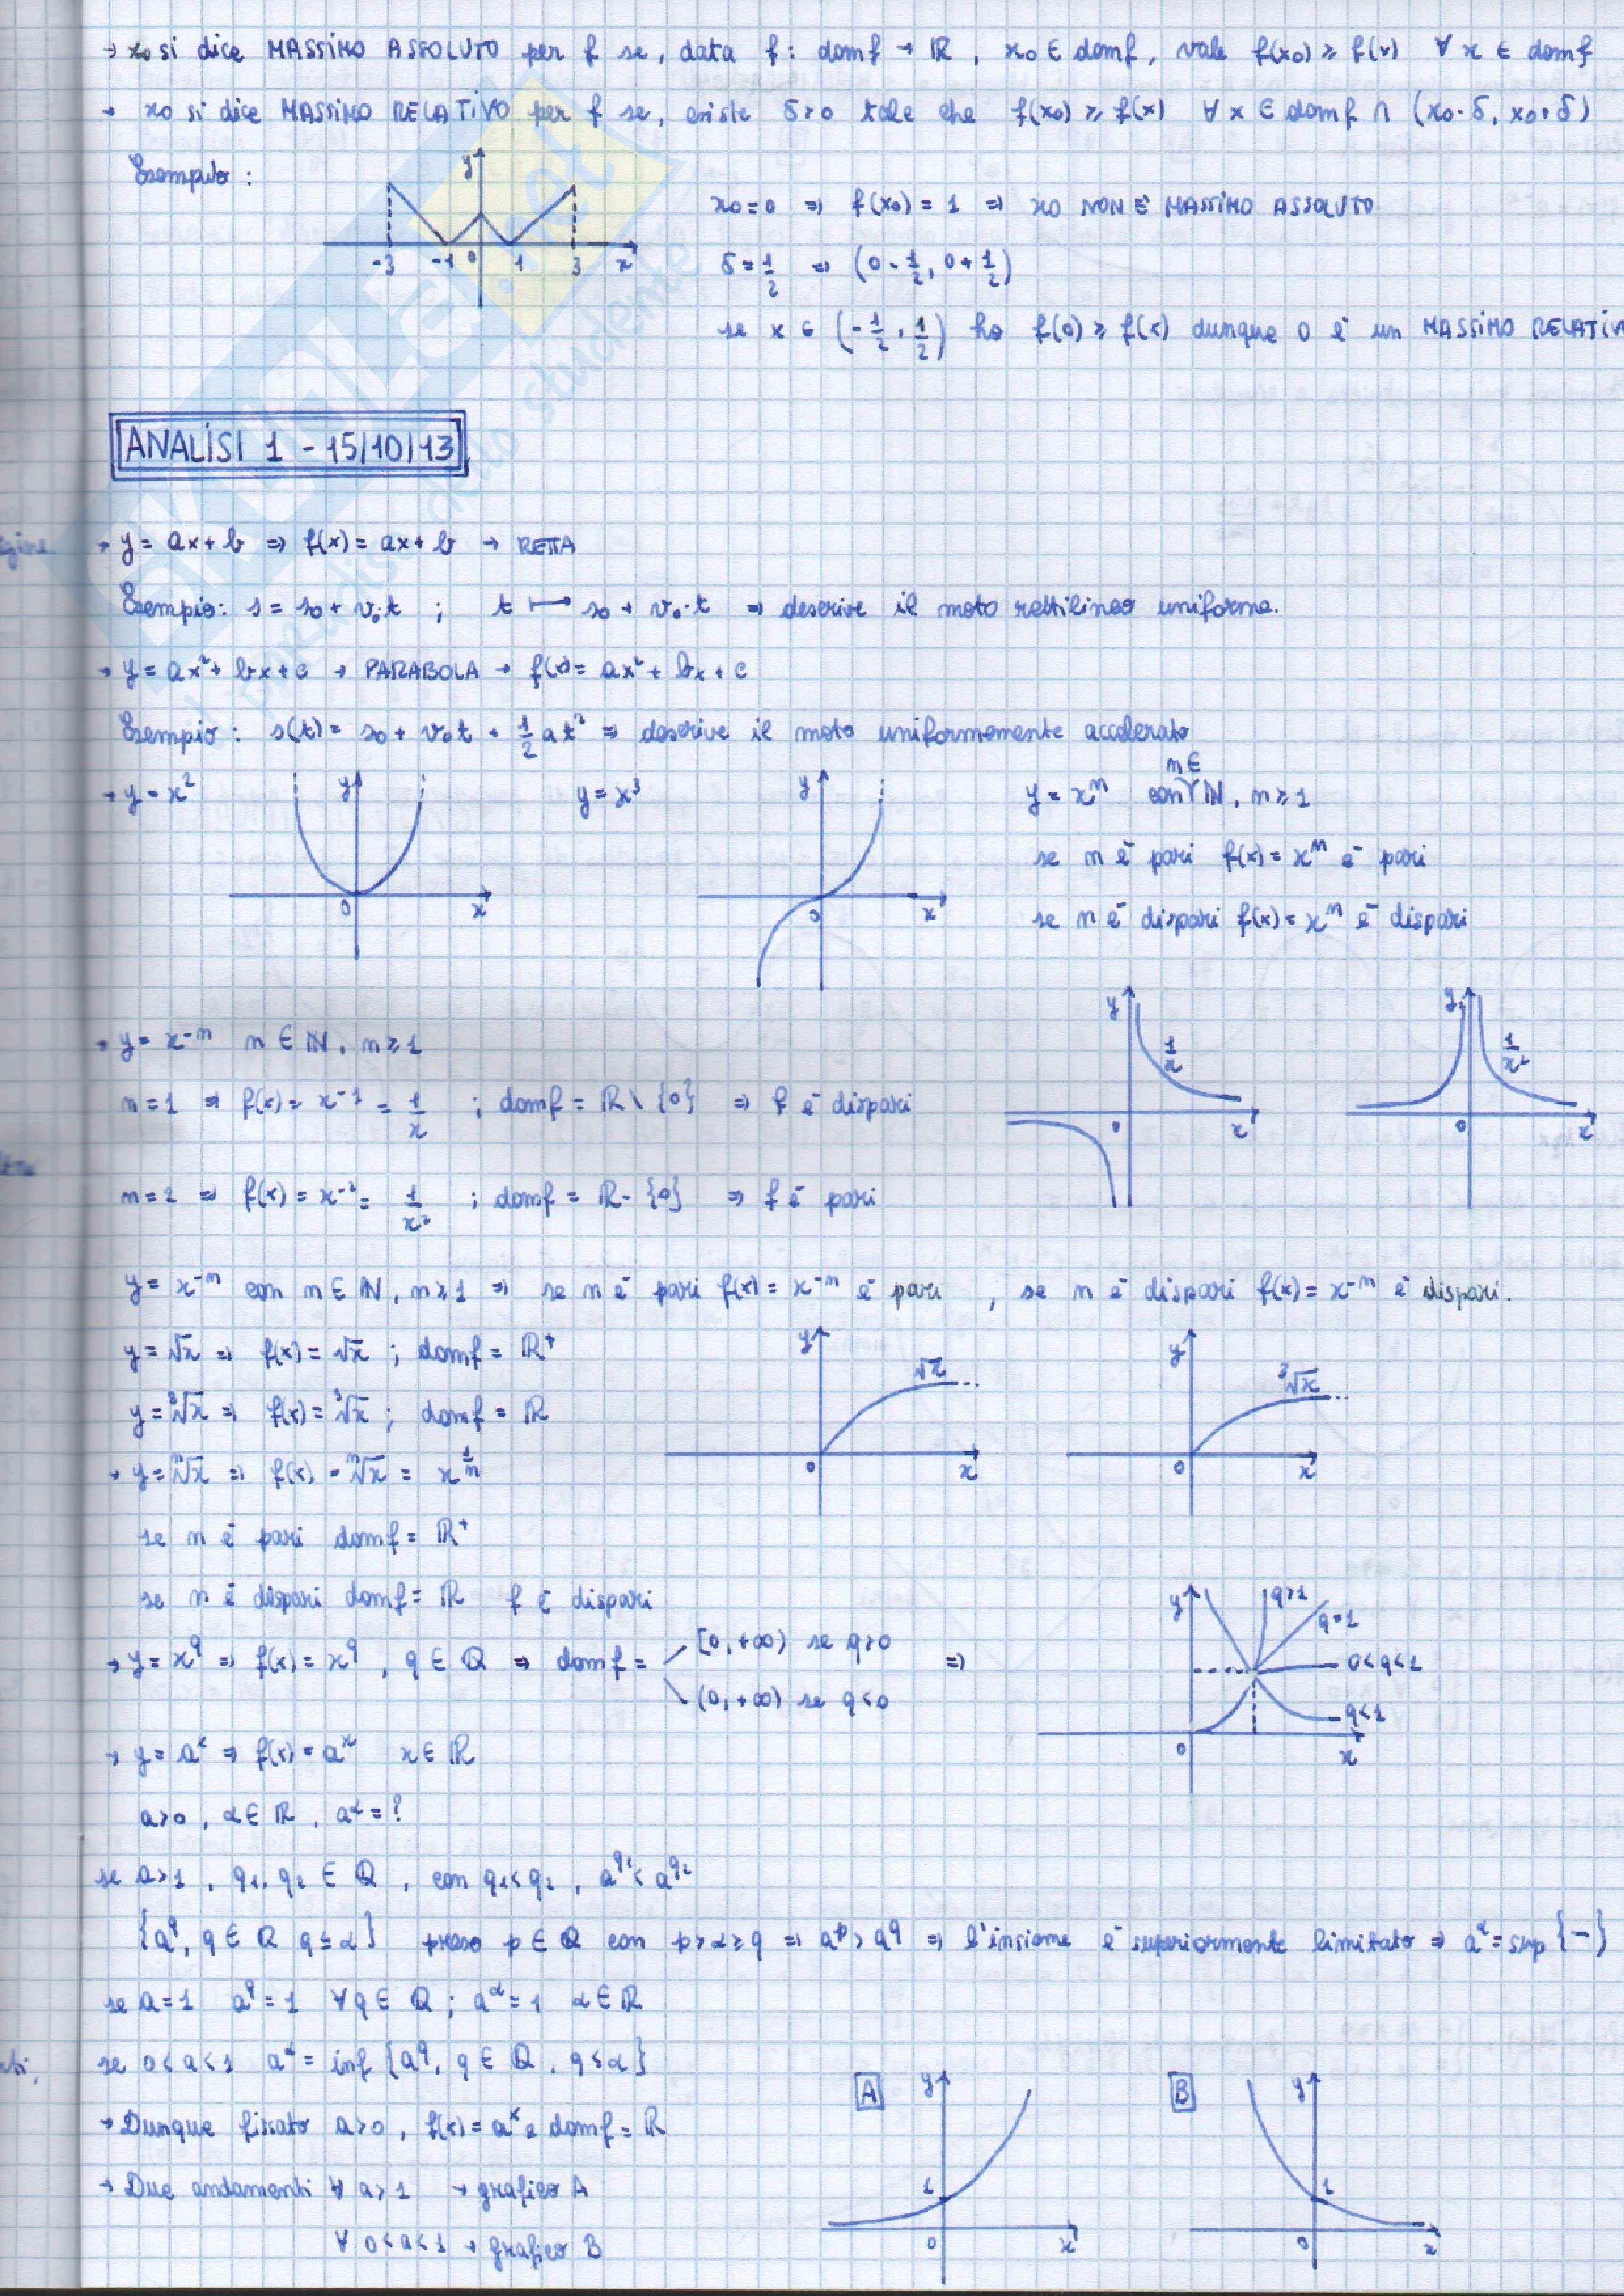 → x₀ si dice MASSIMO ASSOLUTO per f se, data f: domf → ℝ, x₀ ∈ domf, vale f(x₀) ≥ f(x) ∀ x ∈ domf
→ x₀ si dice MASSIMO RELATIVO per f se, esiste δ>0 tale che f(x₀) ≥ f(x) ∀ x ∈ domf ∩ (x₀-δ, x₀+δ)
Esempio:
y
-3 -1 0 1 3 x
x₀=0 ⇒ f(x₀) = 1 ⇒ x₀ NON È MASSIMO ASSOLUTO
δ=1/2 ⇒ (0-1/2, 0+1/2)
se x ∈ (-1/2, 1/2) ho f(0) ≥ f(x) dunque 0 è un MASSIMO RELATIV
ANALISI 1 - 15/10/13
→ y = ax+b ⇒ f(x) = ax+b → RETTA
Esempio: s = s₀ + v₀t ; t ↦ s₀ + v₀·t ⇒ descrive il moto rettilineo uniforme.
→ y = ax²+bx+c → PARABOLA → f(x) = ax²+bx+c
Esempio: s(t) = s₀ + v₀t + 1/2 at² ⇒ descrive il moto uniformemente accelerato
→ y = x²
y 0 x
y = x³
y 0 x
y = xⁿ con n ∈ ℕ, n ≥ 1
se n è pari f(x) = xⁿ è pari
se n è dispari f(x) = xⁿ è dispari
→ y = x⁻ⁿ n ∈ ℕ, n ≥ 1
n=1 ⇒ f(x) = x⁻¹ = 1/x ; domf = ℝ \ {0} ⇒ f è dispari
y 1/x 0 x
y 1/x² 0 x
n=2 ⇒ f(x) = x⁻² = 1/x² ; domf = ℝ - {0} ⇒ f è pari
y = x⁻ⁿ con n ∈ ℕ, n ≥ 1 ⇒ se n è pari f(x) = x⁻ⁿ è pari , se n è dispari f(x) = x⁻ⁿ è dispari.
y = √x ⇒ f(x) = √x ; domf = ℝ⁺
y = ³√x ⇒ f(x) = ³√x ; domf = ℝ
→ y = ⁿ√x ⇒ f(x) = ⁿ√x = x^(1/n)
y √x 0 x
y ³√x 0 x
se n è pari domf = ℝ⁺
se n è dispari domf = ℝ f è dispari
→ y = x^q ⇒ f(x) = x^q , q ∈ ℚ ⇒ domf = [0, +∞) se q>0 ⇒
(0, +∞) se q<0
y q>1 q=1
0<q<1
q<1
0 x
→ y = aˣ ⇒ f(x) = aˣ x ∈ ℝ
a>0 , α ∈ ℝ , a^α = ?
se a>1 , q₁, q₂ ∈ ℚ , con q₁<q₂ , a^q₁ < a^q₂
{a^q, q ∈ ℚ q ≤ α} preso p ∈ ℚ con p > α ≥ q ⇒ a^p > a^q ⇒ l'insieme è superiormente limitato ⇒ a^α = sup {-}
se a=1 a^q = 1 ∀ q ∈ ℚ ; a^α = 1 α ∈ ℝ
se 0<a<1 a^α = inf {a^q, q ∈ ℚ, q ≤ α}
→ Dunque fissato a>0, f(x) = aˣ e domf = ℝ
→ Due andamenti ∀ a>1 → grafico A
∀ 0<a<1 → grafico B
A y 1 0 x
B y 1 0 x